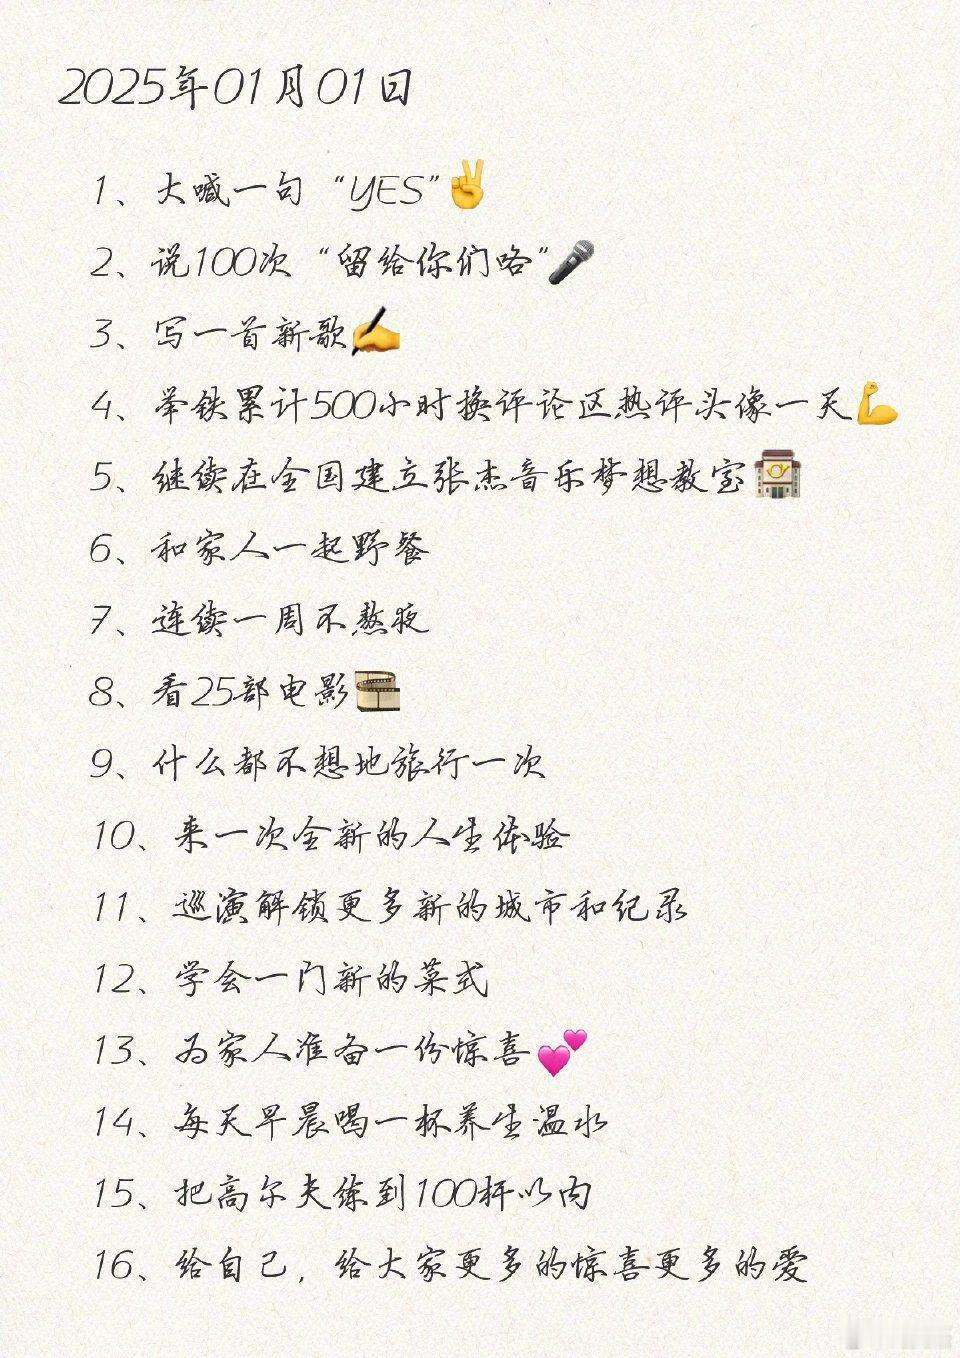 2025年01月01日
1、大喊一句“YES”✌️
2、说100次“留给你们咯”🎤
3、写一首新歌✍️
4、举铁累计500小时换评论区热评头像一天💪
5、继续在全国建立张杰音乐梦想教室🏤
6、和家人一起野餐
7、连续一周不熬夜
8、看25部电影🎞️
9、什么都不想地旅行一次
10、来一次全新的人生体验
11、巡演解锁更多新的城市和纪录
12、学会一门新的菜式
13、为家人准备一份惊喜💕
14、每天早晨喝一杯养生温水
15、把高尔夫练到100杆以内
16、给自己，给大家更多的惊喜更多的爱